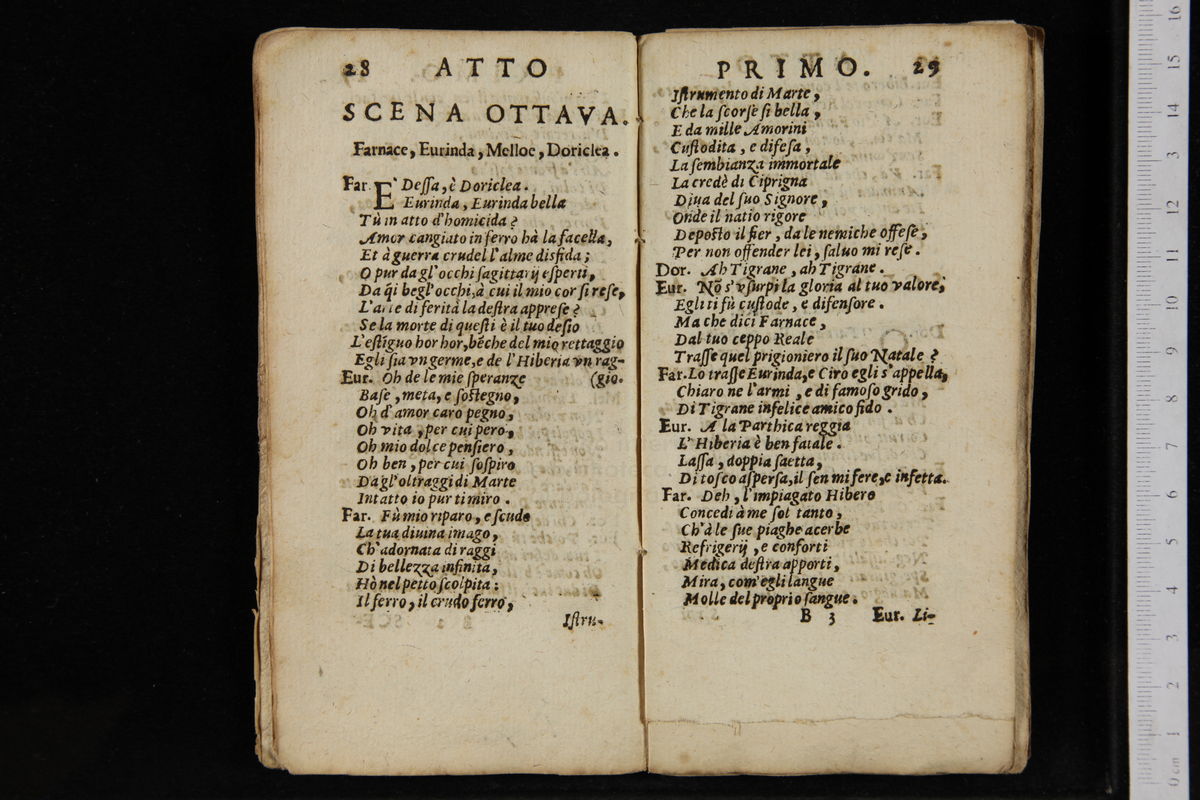 28 ATTO
SCENA OTTAVA.
Farnace, Eurinda, Melloe, Doriclea.
Far. E' Deſſa, è Doriclea.
Eurinda, Eurinda bella
Tù in atto d'homicida?
Amor cangiato in ferro hà la facella,
Et à guerra crudel l'alme disfida;
O pur da gl'occhi ſagittarij eſperti,
Da q̃i begl'occhi, à cui il mio cor ſi reſe,
L'arte di ferità la deſtra appreſe?
Se la morte di queſti è il tuo deſio
L'eſtiguo hor hor, bẽche del mio rettaggio
Egli ſia vn germe, e de l'Hiberia vn rag-
Eur. Oh de le mie ſperanze (gio.
Baſe, meta, e ſoſtegno,
Oh d'amor caro pegno,
Oh vita, per cui pero,
Oh mio dolce penſiero,
Oh ben, per cui ſoſpiro
Da gl'oltraggi di Marte
Intatto io pur ti miro.
Far. Fù mio riparo, e ſcudo
La tua diuina imago,
Ch'adornata di raggi
Di bellezza infinita,
Hò nel petto ſcolpita:
Il ferro, il crudo ferro,
Iſtru-
PRIMO. 29
Iſtrumento di Marte,
Che la ſcorſe ſi bella,
E da mille Amorini
Cuſtodita, e difeſa,
La ſembianza immortale
La credè di Ciprigna
Diua del ſuo Signore,
Onde il natio rigore
Depoſto il fier, da le nemiche offeſe,
Per non offender lei, ſaluo mi reſe.
Dor. Ah Tigrane, ah Tigrane.
Eur. Nõ s'vſurpi la gloria al tuo valore,
Egli ti fù cuſtode, e difenſore.
Ma che dici Farnace,
Dal tuo ceppo Reale
Traſſe quel prigioniero il ſuo Natale?
Far. Lo traſſe Eurinda, e Ciro egli s'appella,
Chiaro ne l'armi, e di famoſo grido,
Di Tigrane infelice amico fido.
Eur. A la Parthica reggia
L'Hiberia è ben fatale.
Laſſa, doppia ſaetta,
Di toſco aſperſa, il ſen mi fere, e infetta.
Far. Deh, l'impiagato Hibero
Concedi à me ſol tanto,
Ch'à le ſue piaghe acerbe
Refrigerij, e conforti
Medica deſtra apporti,
Mira, com'egli langue
Molle del proprio ſangue.
B 3 Eur. Li-
16
15
14
3
13
12
11
10
9
8
7
6
5
4
3
2
1
0 cm